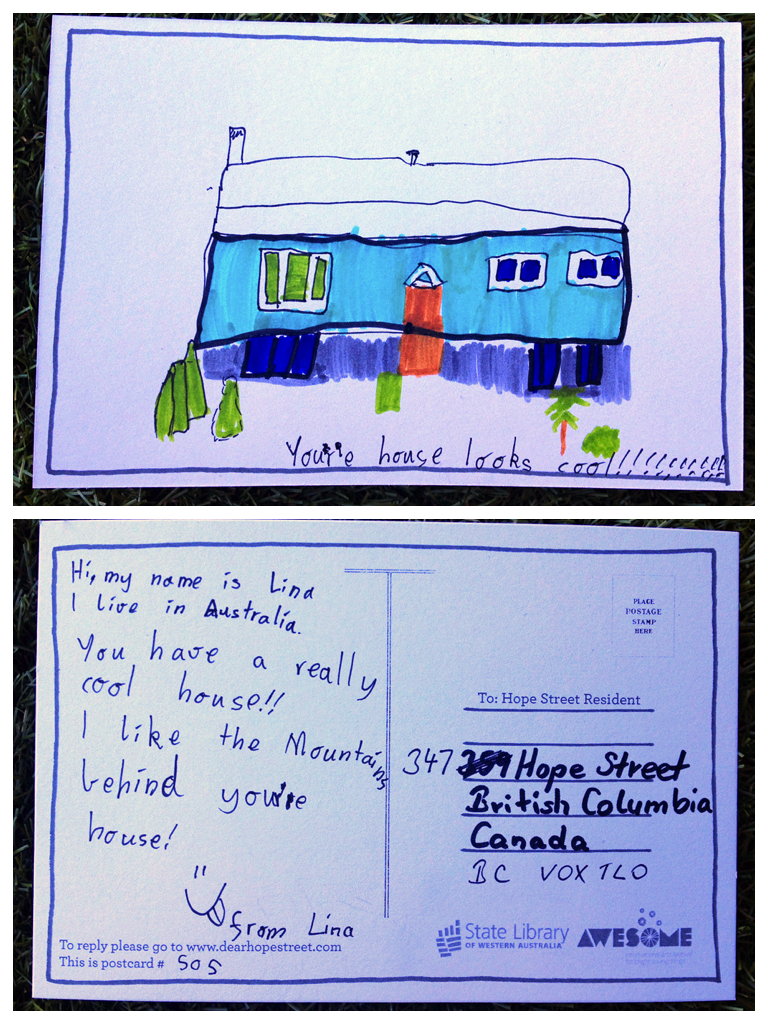 You're house looks cool!!!!!!!!!!!
Hi, my name is Lina
I live in Australia.
You have a really
cool house!!
I like the Mountains
behind you're
house!
from Lina
To reply please go to www.dearhopestreet.com
This is postcard # 505
PLACE
POSTAGE
STAMP
HERE
To: Hope Street Resident
347 Hope Street
British Columbia
Canada
BC VOX TLO
State Library
OF WESTERN AUSTRALIA
AWESOME